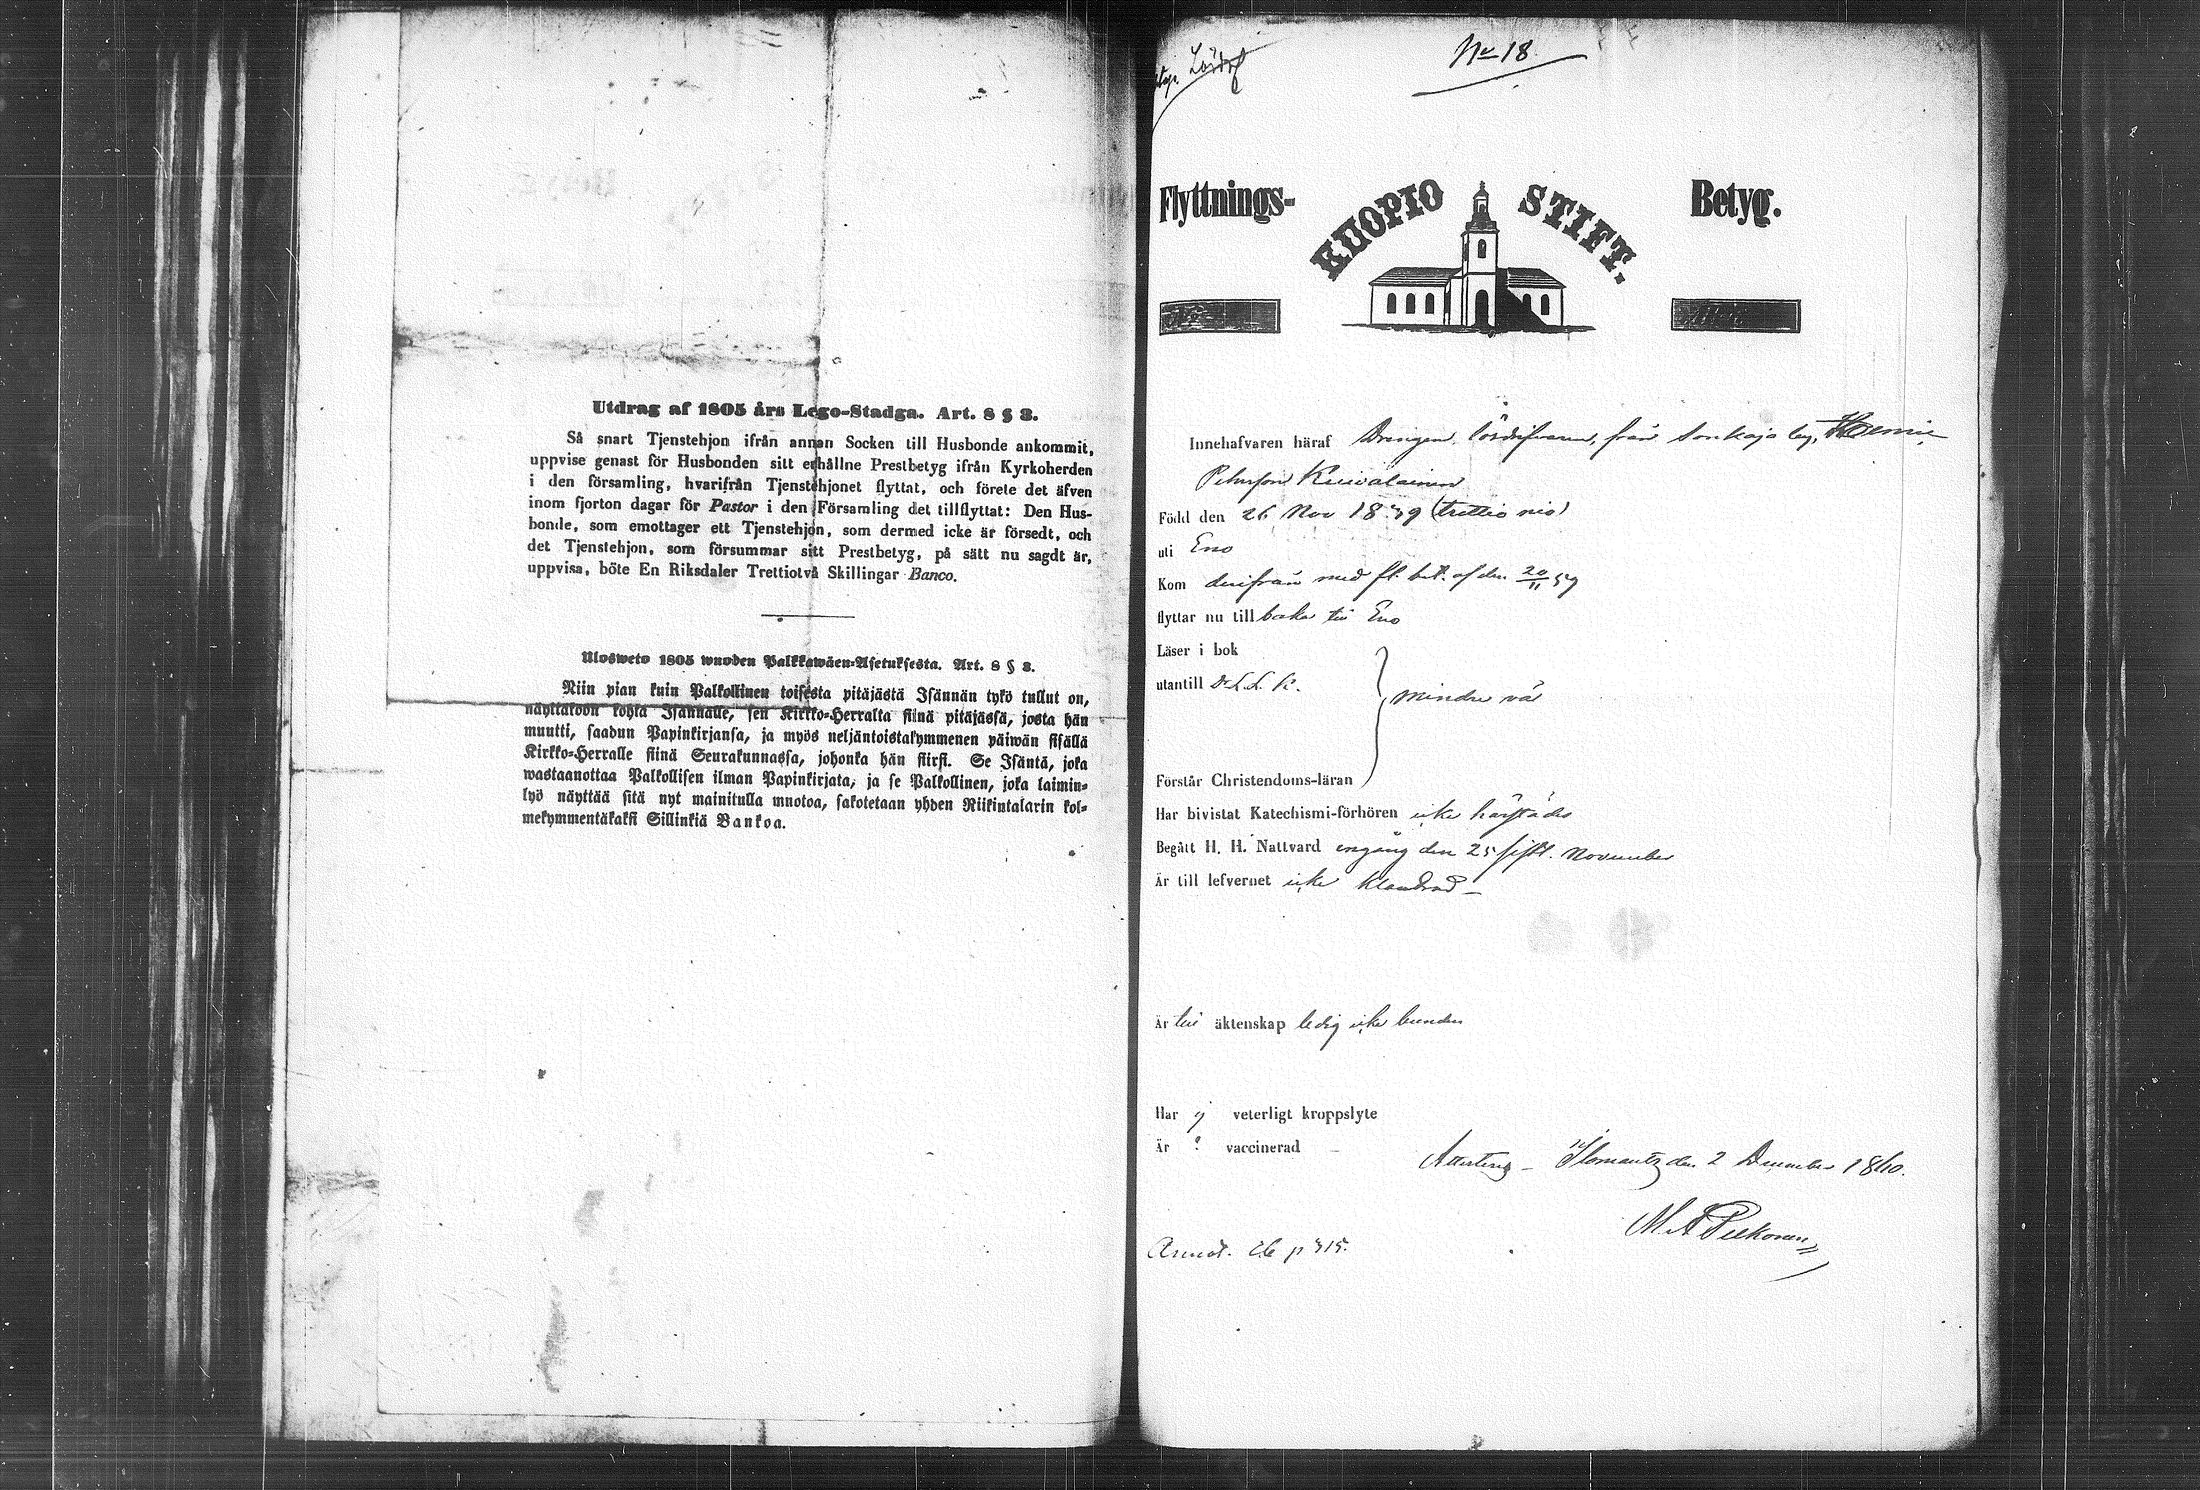 Utdrag af 1805 års Lego-Stadga. Art. 8 § 3.
Så snart Tjenstehjon ifrån annan Socken till Husbonde ankommit,
uppvise genast för Husbonden sitt erhållne Prestbetyg ifrån Kyrkoherden
i den församling, hvarifrån Tjenstehjonet flyttat, och förete det äfven
inom fjorton dagar för Pastor i den Församling det tillflyttat: Den Hus-
bonde, som emottager ett Tjenstehjon, som dermed icke är försedt, och
det Tjenstehjon, som försummar sitt Prestbetyg, på sätt nu sagdt är,
uppvisa, böte En Riksdaler Trettiotvå Skillingar Banco.
Ulosweto 1805 wuoden Palkkawäen-Asetuksesta. Art. 8 § 3.
Niin pian kuin Palkollinen toisesta pitäjästä Isännän tykö tullut on,
näyttäköön kohta Isännälle, sen Kirkko-Herralta siinä pitäjässä, josta hän
muutti, saadun Papinkirjansa, ja myös neljäntoistakymmenen päiwän sisällä
Kirkko-Herralle siinä Seurakunnassa, johonka hän siirsi. Se Isäntä, joka
wastaanottaa Palkollisen ilman Papinkirjata, ja se Palkollinen, joka laimin-
lyö näyttää sitä nyt mainitulla muotoa, sakotetaan yhden Riikintalarin kol-
mekymmentäkaksi Sillinkiä Bankoa.
No 18
Flyttnings- KUOPIO STIFT. Betyg.
Innehafvaren häraf Drengen, från Sonkaja by,
Pehrson Kuivalainen
Född den 26 Nov 1839 (trettio nio)
uti Eno
Kom derifrån med fl. bet. af den 20/11 59
flyttar nu till baka till Eno
Läser i bok
utantill
mindre väl
Förstår Christendoms-läran
Har bivistat Katechismi-förhören icke härstädes
Begått H. H. Nattvard engång den 25 sistl. November
Är till lefvernet icke klandrad
Är till äktenskap ledig icke bunden
Har ej veterligt kroppslyte
Är ? vaccinerad
Attesteras Ilomantz den 2 December 1860.
M. A. Pelkonen
Annot. p 315.